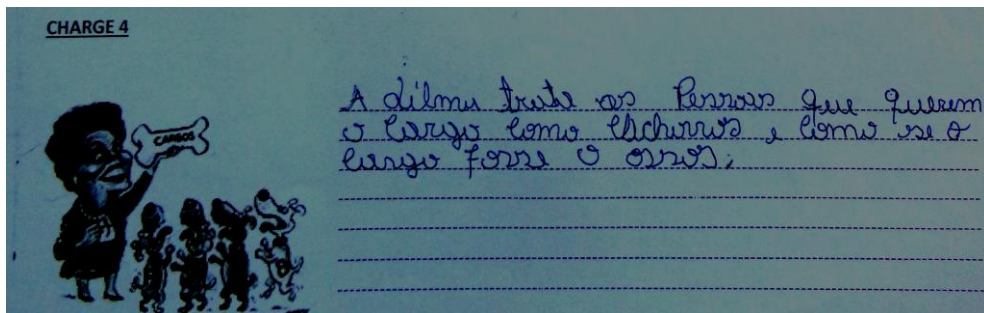 CHARGE 4
CARGOS
A dilma trata as Pessoas que querem
o cargo como cachorros, e como se o
cargo fosse o ossos.